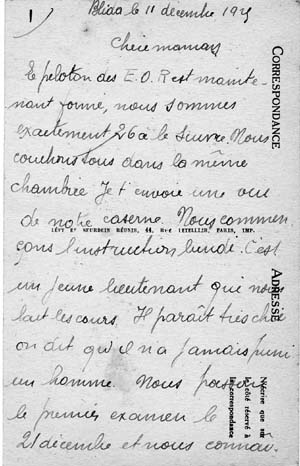 1)
Blida le 11 décembre 192
Chère maman
Le peloton des E.O.R est mainte-
nant formé, nous sommes
exactement 26 à le suivre. Nous
couchons tous dans la même
chambrée Je t'envoie une vue
de notre caserne. Nous commen
LÉVY Et NEURDEIN RÉUNIS, 44, Rue LETELLIER, PARIS, IMP.
çons l'instruction lundi. C'est
un jeune lieutenant qui nous
fait les cours. Il paraît très chic
on dit qu'il n'a jamais puni
un homme. Nous passons
le premier examen le
21 décembre et nous connaî-
CORRESPONDANCE
ADRESSE
N'écrire que sur
le côté réservé à
la correspondance